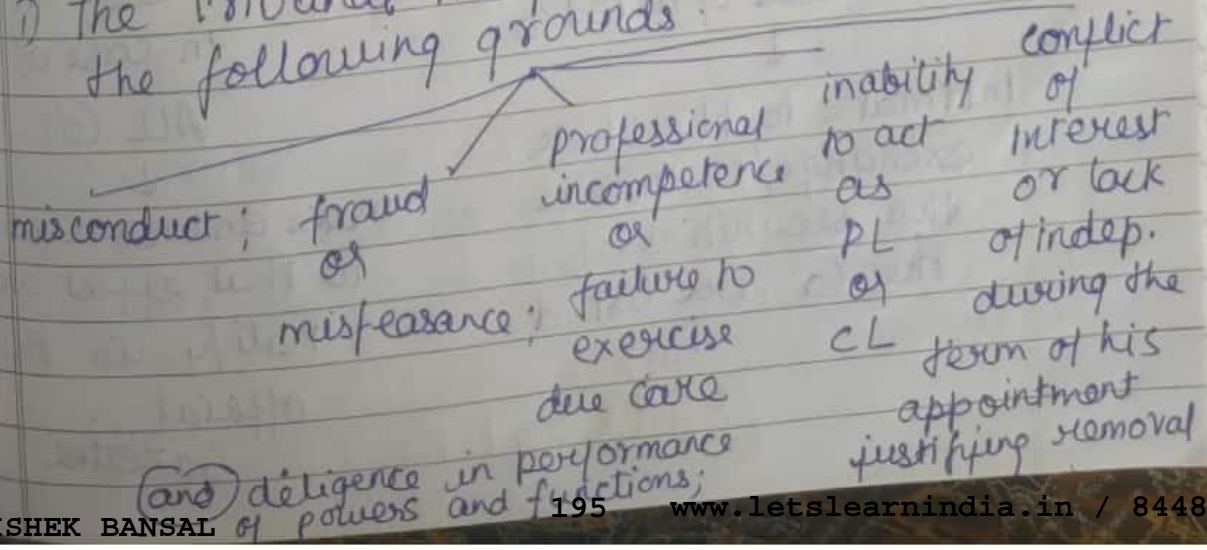 1) The
the following grounds.
misconduct;
fraud
or
misfeasance;
professional
incompetence
or
failure to
exercise
due care
(and) deligence in performance
of powers and functions;
inability
to act
as
PL
or
CL
conflict
of
interest
or lack
of indep.
during the
term of his
appointment
justifying removal
ISHEK BANSAL
195
www.letslearnindia.in / 8448